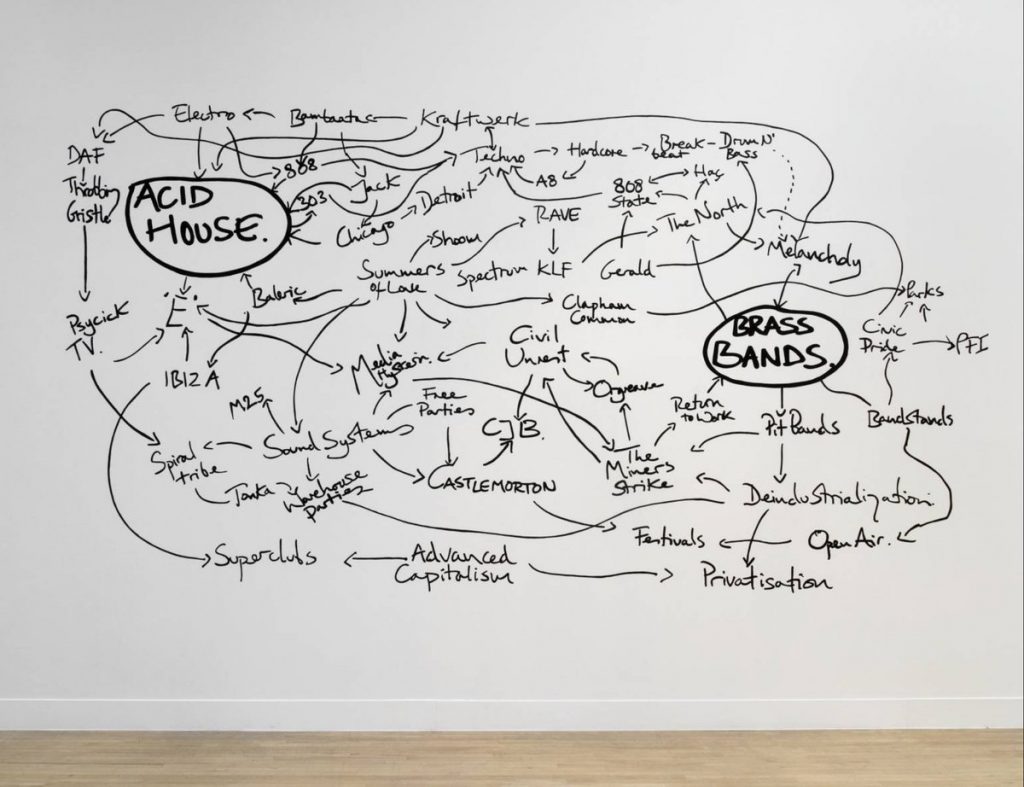 Electro
Bambaata
Kraftwerk
DAF
Throbbing
Gristle
ACID
HOUSE.
808
303
Jack
Chicago
Detroit
Techno
Hardcore
Break
beat
Drum N'
Bass
A8
808
State
Hac
The North
RAVE
Shoom
Summers
of Love
Spectrum
KLF
Gerald
Melancholy
'E'.
Baleric
Clapham
Common
Parks
Psycick
TV.
IBIZA
Media
Hysteria.
Civil
Unrest
BRASS
BANDS.
Civic
Pride
PFI
M25
Free
Parties
Orgreave
Return
to Work
Pit Bands
Bandstands
Spiral
tribe
Sound Systems
CJB.
The
Miners
Strike
Tonka
Warehouse
parties
CASTLEMORTON
Deindustrialization.
Festivals
Open Air.
Superclubs
Advanced
Capitalism
Privatisation